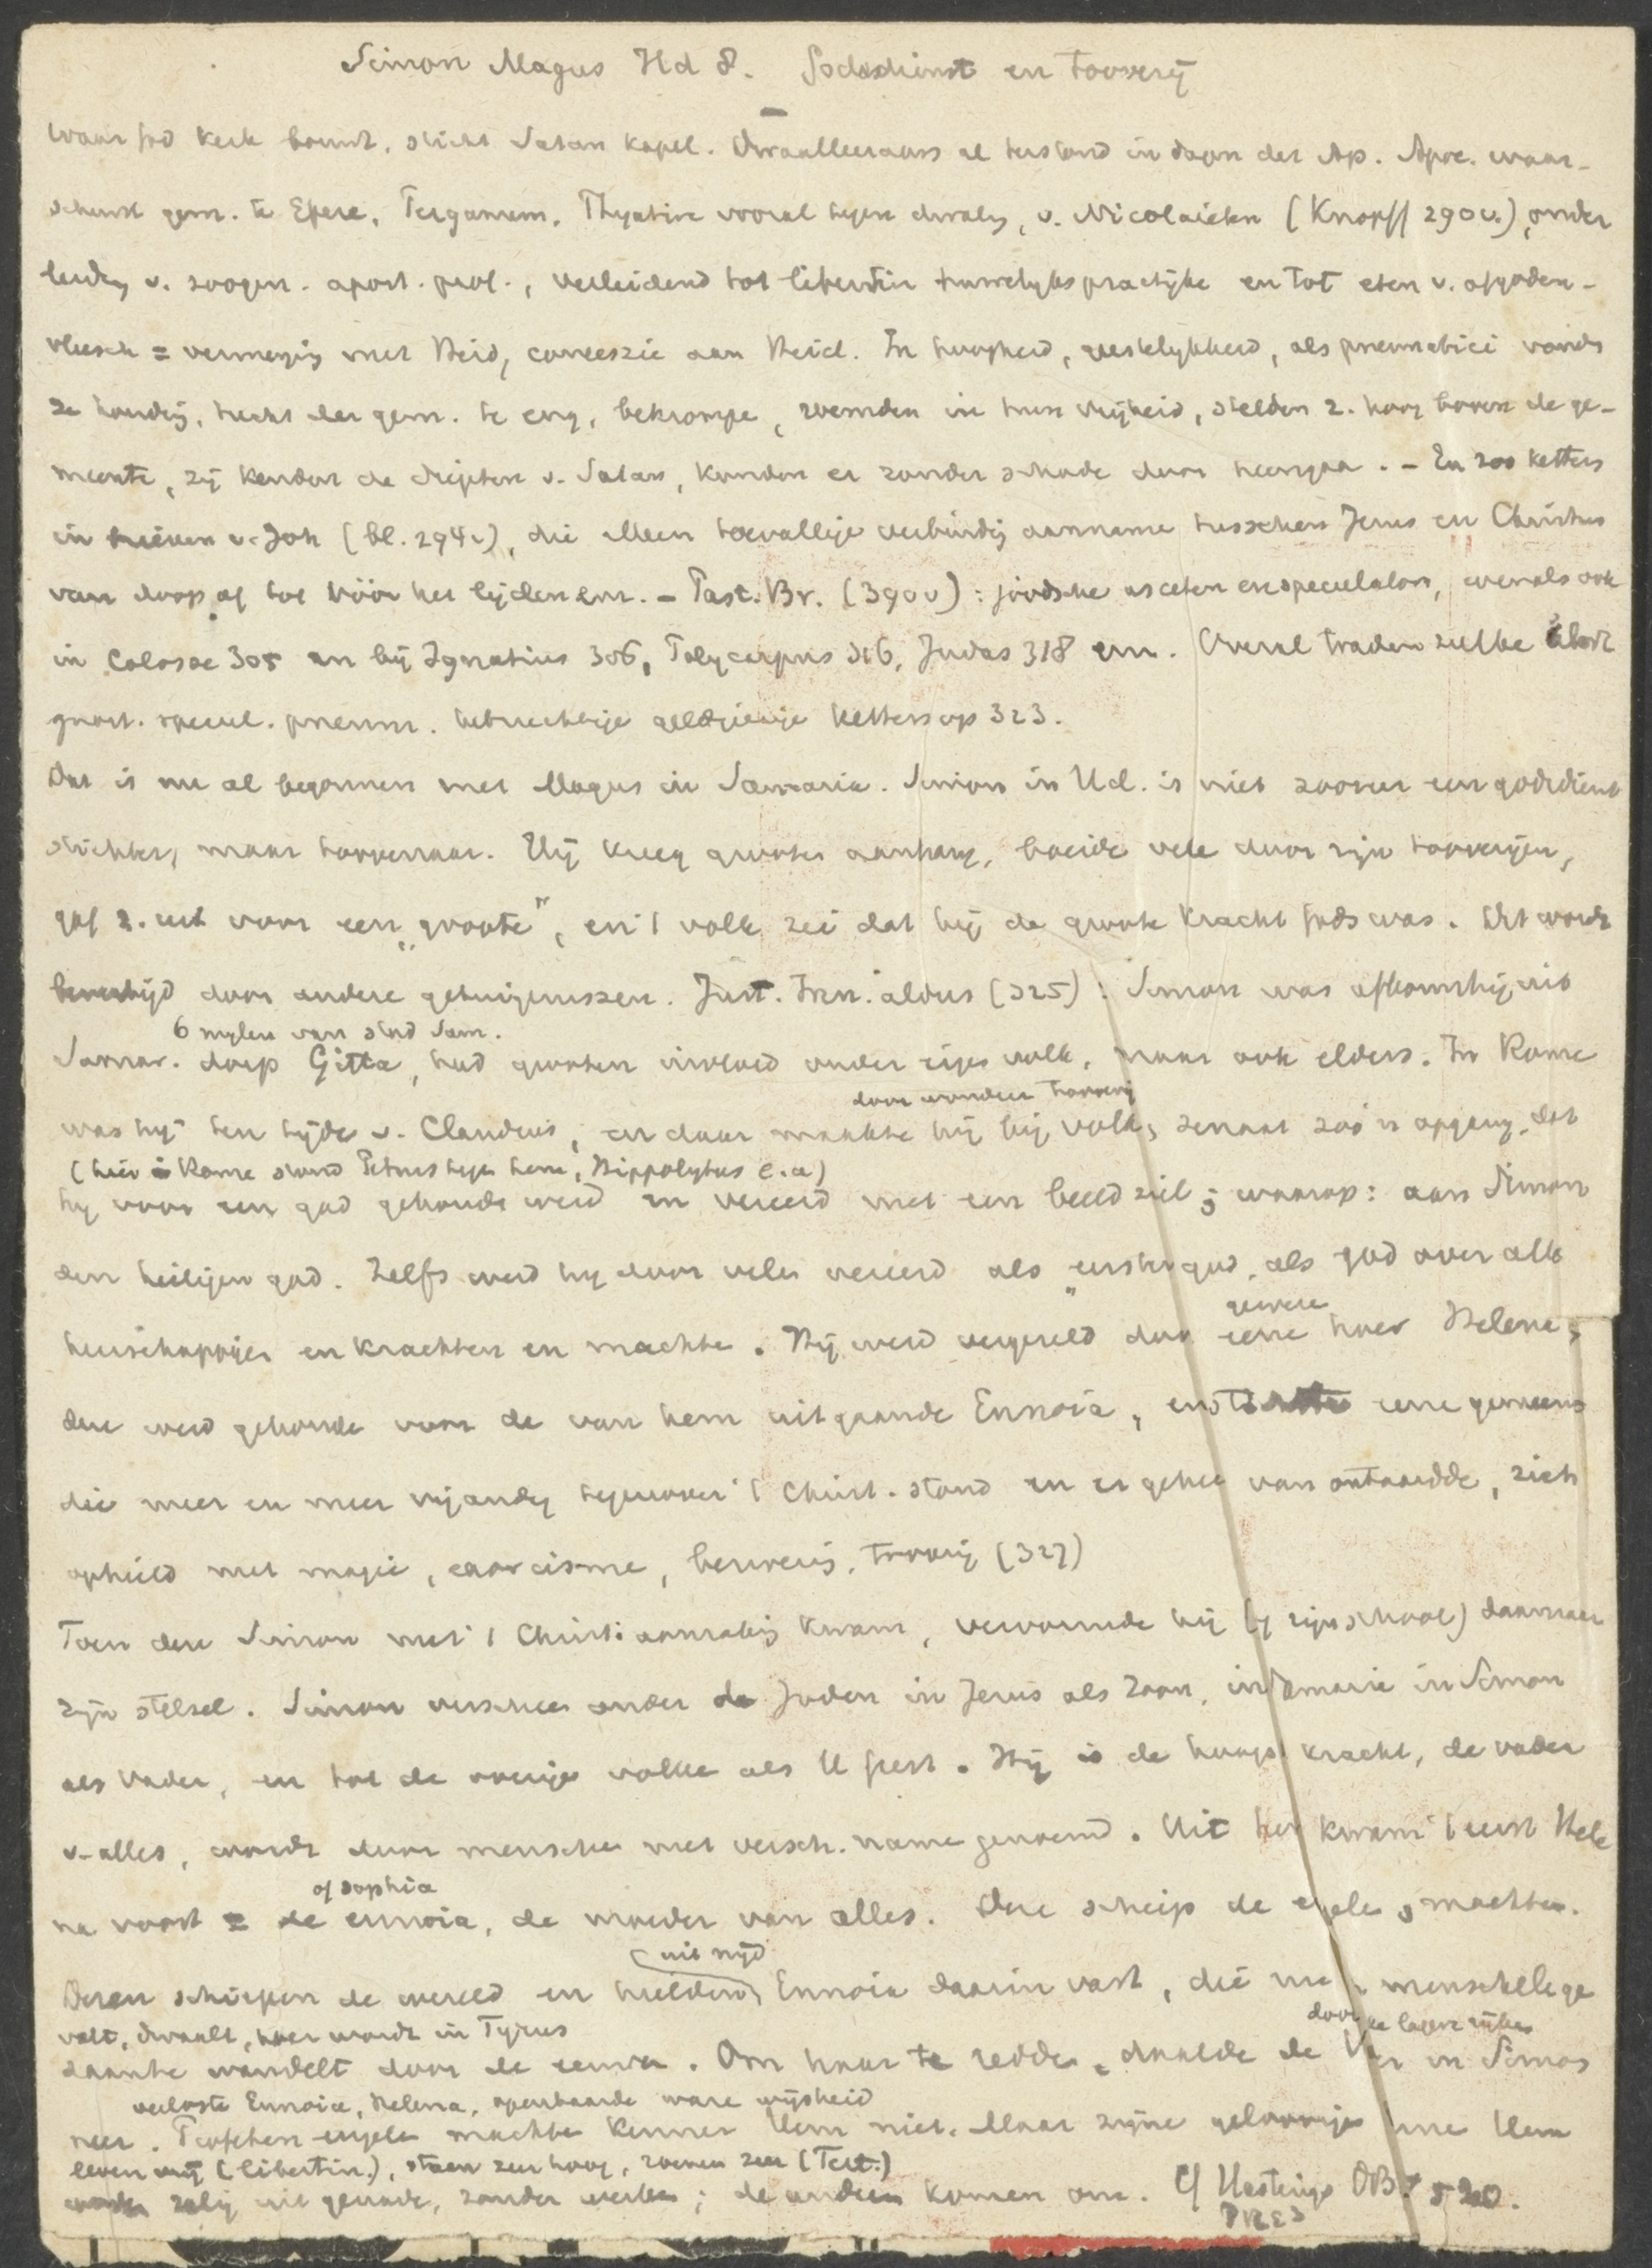 Simon Magus Hd 8. Godsdienst en tooverij
Waar God kerk bouwt, sticht Satan kapel. Dwaalleeraars al terstond in dagen der Ap. Apoc. waar-
schuwt gem. te Efeze, Pergamum, Thyatire vooral tegen dwaling v. Nicolaieten (Knopff 290v.), onder
leiding v. zoogen. apost. prof., verleidend tot libertin huwelijkspractijke en tot eten v. afgoden-
vleesch = vermenging met Heid, concessie aan Heid. In hoogheid, geestelykheid, als pneumatici vonden
ze houding, tucht der gem. te eng, bekrompe, roemden in hun vrijheid, stelden z. hoog boven de ge-
meente, zij kenden de diepten v. Satan, konden er zonder schade door heengaa. – En zoo ketters
in brieven v. Joh (bl. 294v), die alleen toevallige verbinding aanname tusschen Jezus en Christus
van doop af tot vóór het lijden enz. – Past. Br. (390v): joodsche asceten en speculaton, evenals ook
in Colosse 305 en bij Ignatius 306, Polycarpus 316, Judas 318 enz. Overal traden zulke
gnost. specul. pneum. hebzuchtige geldgierige ketters op 323.
Dat is nu al begonnen met Magus in Samaria. Simon in Hd. is niet zoozeer een godsdienst
stichter, maar toovenaar. Hij kreeg grooten aanhang, boeide vele door zijn tooverijen,
gaf z. uit voor een „groote", en 't volk zei dat hij de groote kracht Gods was. Dit wordt
bevestigd door andere getuigenissen. Just. Iren. aldus (325): Simon was afkomstig uit
6 mylen van stad Sam.
Samar. dorp Gitta, had grooten invloed onder eigen volk, maar ook elders. In Rome
door wonderen toovery
was hij ten tijde v. Claudius, en daar maakte hij bij volk, senaat zoo'n opgang, dat
(hier in Rome stond Petrus tegen hem, Hippolytus e.a)
hy voor een god gehoude werd en vereerd met een beeldzuil; waarop: aan Simon
den heiligen god. Zelfs werd hy door velen vereerd als „eerste god, als god over alle
heerschappijen en krachten en machte. Hij werd vergezeld door
gewezen
eene hoer Helene,
deze werd gehoude voor de van hem uitgaande Ennoia, en stichtte eene gemeens
die meer en meer vijandig tegenover 't Christ. stond en er geheel van ontaardde, zich
ophield met magie, exorcisme, bezwerij, toovrij (327)
Toen deze Simon met 't Christ. aanraking kwam, vervormde hij (of zijn school) daarnaar
zijn stelsel. Simon verscheen onder de Joden in Jezus als Zoon, in Samarie in Simon
als Vader, en tot de overige volke als H Geest. Hij is de hoogst kracht, de vader
v. alles, wordt door mensche met versch. name genoemd. Uit hem kwam 't eerst Hele
of sophia
na voort = de ennoia, de moeder van alles. Deze schiep de engele, machten.
uit nijd
Dezen schiepen de wereld en hielden Ennoia daarin vast, die nu in menschelijke ge
valt, dwaalt, hoer wordt in Tyrus
daante wandelt door de eeuwen. Om haar te redden, daalde de Vader in Simon
door de lagere rijken
verloste Ennoia, Helena, openbaarde ware wijsheid
neer. engele machte kennen Hem niet. Maar zijne geloovige Hem
leven vrij (libertin.), staan zeer hoog, roemen zeer (Tert.)
worden zalig uit genade, zonder werken; de andren komen om. Cf Hastings DB. 520.
PRE3